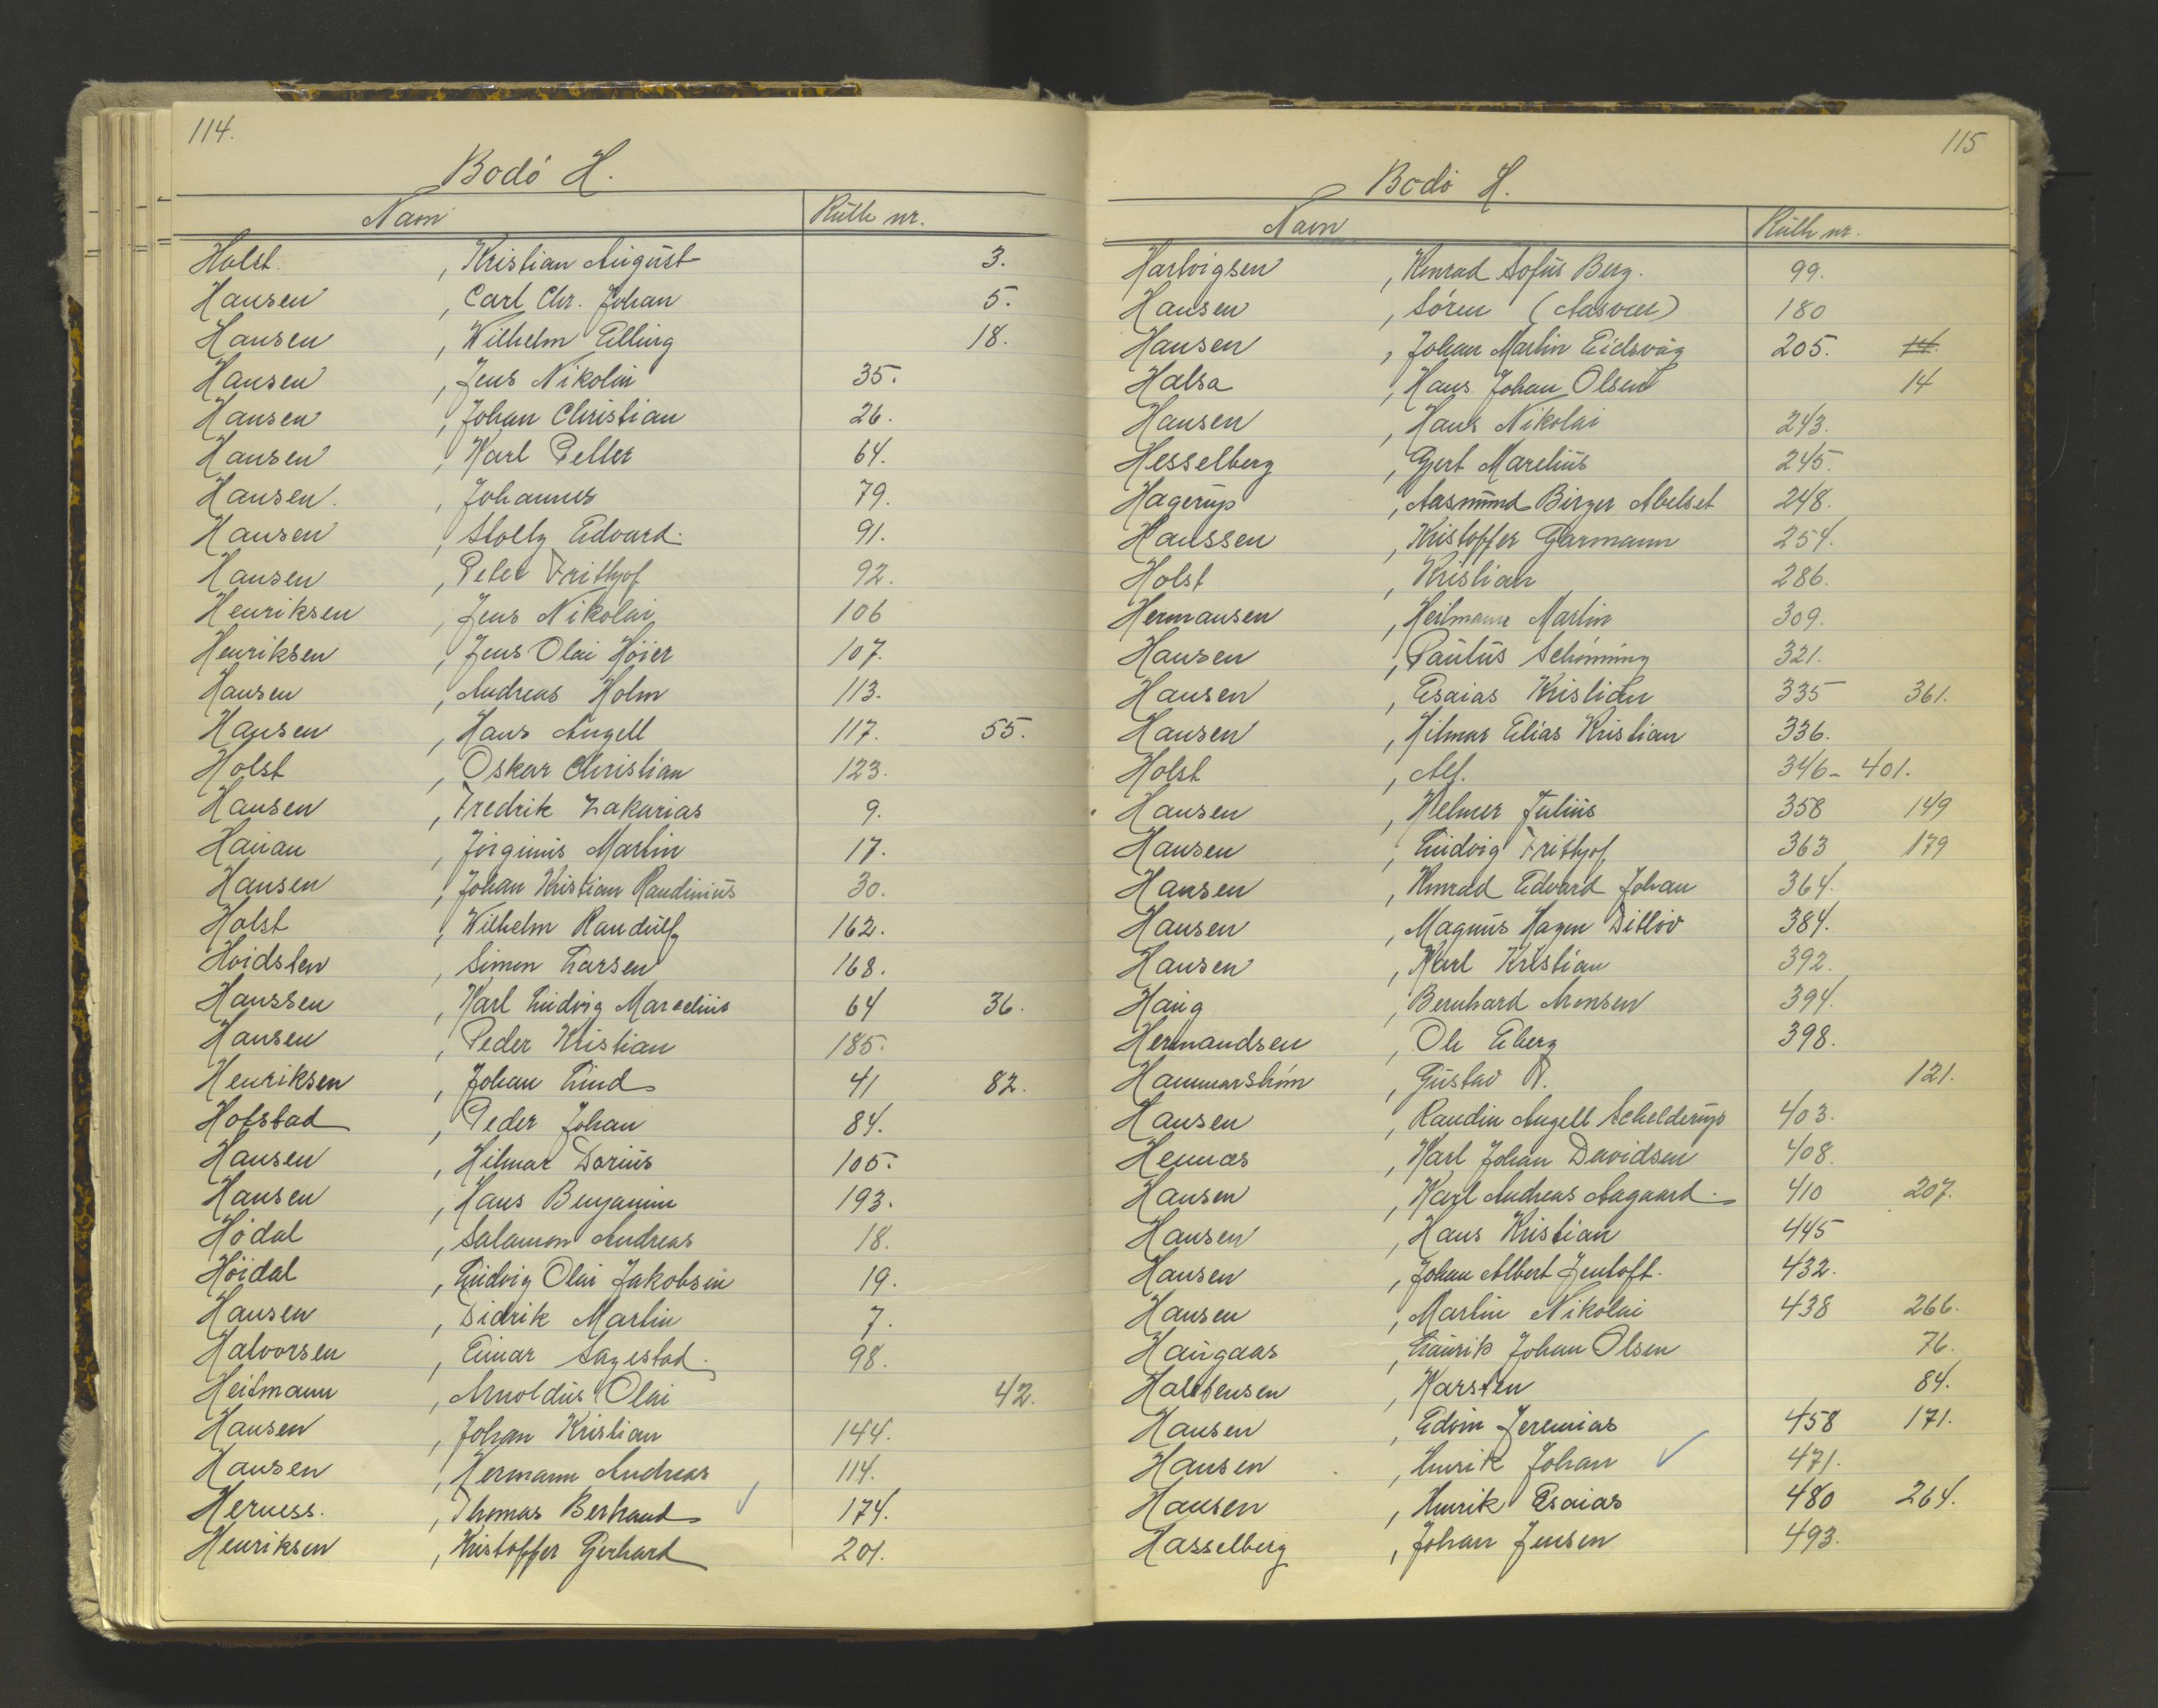 114.
Bodö H.
Navn Rulle nr.
Holst. , Kristian August 3.
Hansen , Carl Chr. Johan 5.
Hansen , Wilhelm Elling 18.
Hansen , Jens Nikolai 35.
Hansen , Johan Christian 26.
Hansen , Karl Petter 64.
Hansen. , Johannes 79.
Hansen , Stoltz Edvard. 91.
Hansen , Peter Frithjof 92.
Henriksen , Jens Nikolai 106
Henriksen , Jens Olai Höier 107.
Hansen , Andreas Holm 113.
Hansen , Hans Angell 117. 55.
Holst , Oskar Christian 123.
Hansen , Fredrik Zakarias 9.
Hauan , Jörginus Martin 17.
Hansen , Johan Kristian Raudinius 30.
Holst , Wilhelm Randulf 162.
Hvidsten , Simon Larsen 168.
Hanssen , Karl Ludvig Marselius 64 36.
Hansen , Peder Kristian 185.
Henriksen , Johan Lind 41 82.
Hofstad , Peder Johan 84.
Hansen , Hilmar Darius 105.
Hansen , Hans Benjamin 193.
Hödal , Salamon Andreas 18.
Höidal , Ludvig Olai Jakobsen 19.
Hansen , Didrik Martin 7.
Halvorsen , Einar Sagestad. 98.
Heitmann , Arnoldus Olai 42.
Hansen , Johan Kristian 144.
Hansen , Hermann Andreas 114.
Herness. , Thomas Berhand ✓ 174.
Henriksen , Kristoffer Gerhard 201.
115
Bodö H.
Navn Rulle nr.
Hartvigsen , Konrad Sofus Berg. 99.
Hansen , Sören (Aasvær) 180
Hansen , Johan Martin Eidsvåg 205. 14.
Halsa , Hans Johan Olsen 14
Hansen , Hans Nikolai 243.
Hesselberg , Gjert Marelius 245.
Hagerup , Aasmund Birger Abelset 248.
Hanssen , Kristoffer Garmann 254.
Holst , Kristian 286.
Hermansen , Heitmann Martin 309.
Hansen , Paulus Schönning 321.
Hansen , Esaias Kristian 335 361.
Hansen , Hilmar Elias Kristian 336.
Holst , Alf. 346- 401.
Hansen , Helmer Julius 358 149
Hansen , Ludvig Frithjof 363 179
Hansen , Konrad Edvard Johan 364.
Hansen , Magnus Hagen Ditlöv 384.
Hansen , Karl Kristian 392.
Haug , Bernhard Aronsen 394.
Hermandsen , Ole Eberg 398.
Hammarström , Gustav A. 121.
Hansen , Raudin Angell Schelderup 403.
Hennæs , Karl Johan Davidsen 408.
Hansen , Karl Andreas Aagaard. 410 207.
Hansen , Hans Kristian 445
Hansen , Johan Albert Jentoft. 432.
Hansen , Martin Nikolai 438 266.
Haugaas , Laurik Johan Olsen 76.
Halstensen , Karsten 84.
Hansen , Edvin Jeremias 458 171.
Hansen , Henrik Johan ✓ 471.
Hansen , Henrik Esaias 480 264.
Hasselberg , Johan Jensen 493.